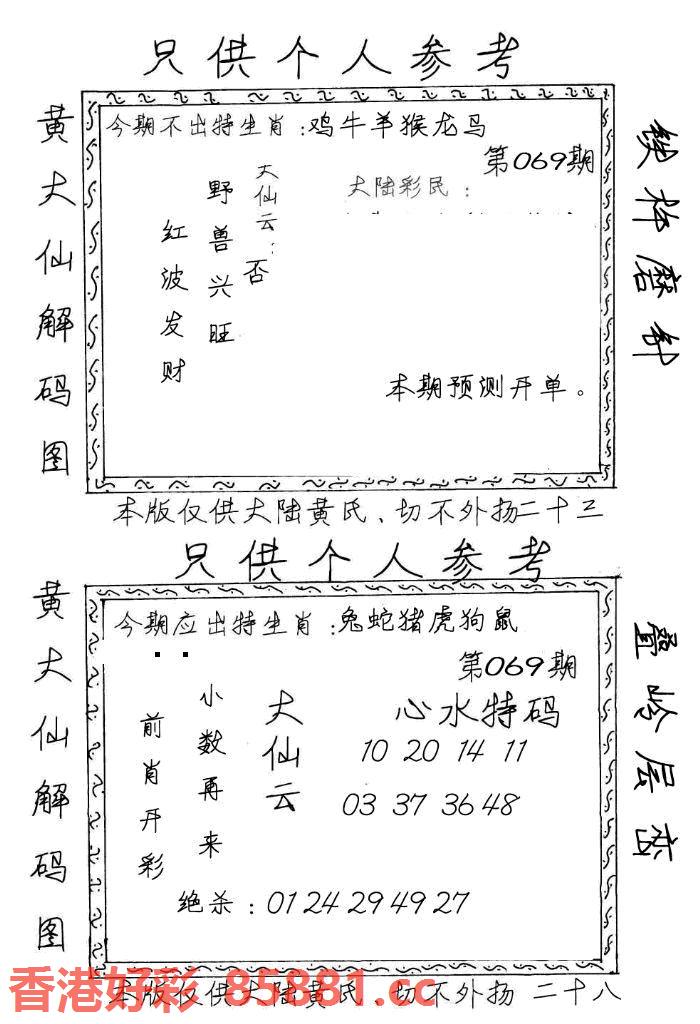 只供个人参考
黄大仙解码图
今期不出特生肖:鸡牛羊猴龙马
第069期
大仙云:否
野兽兴旺
红波发财
大陆彩民:
本期预测开单。
铁杵磨针
本版仅供大陆黄氏、切不外扬二十三
只供个人参考
黄大仙解码图
今期应出特生肖:兔蛇猪虎狗鼠
第069期
心水特码
10 20 14 11
03 37 36 48
大仙云
小数再来
前肖开彩
绝杀:01 24 29 49 27
叠岭层峦
本版仅供大陆黄氏、切不外扬 二十八
香港好彩 85881.cc